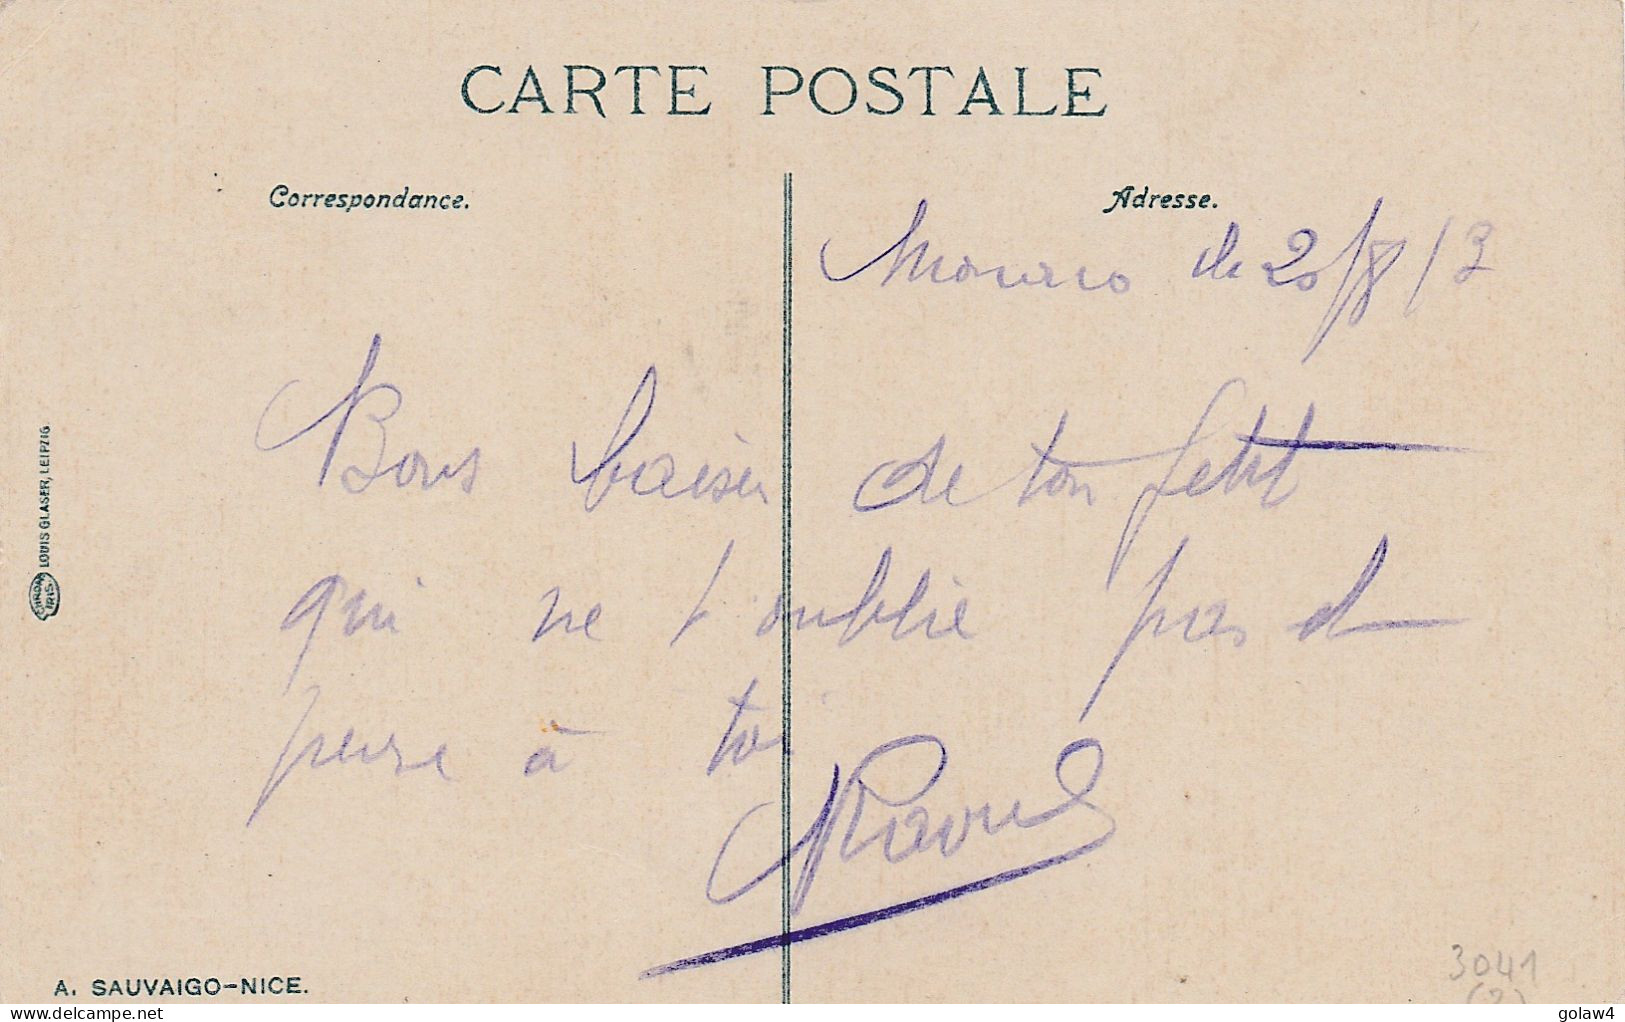 CARTE POSTALE
Correspondance.
Adresse.
Monaco le 20/8/13
Bons baiser de ton petit
qui ne t'oublie pas et
pense à toi
Raoul
CHROM IRIS. LOUIS GLASER, LEIPZIG
A. SAUVAIGO-NICE.
3041
(2)
delcampe.net
golaw4